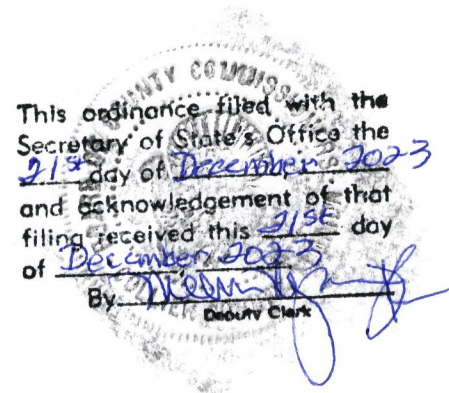 COUNTY COMMISS
This ordinance filed with the
Secretary of State's Office the
21st day of December 2023
and acknowledgement of that
filing received this 21st day
of December 2023
By
Deputy Clerk